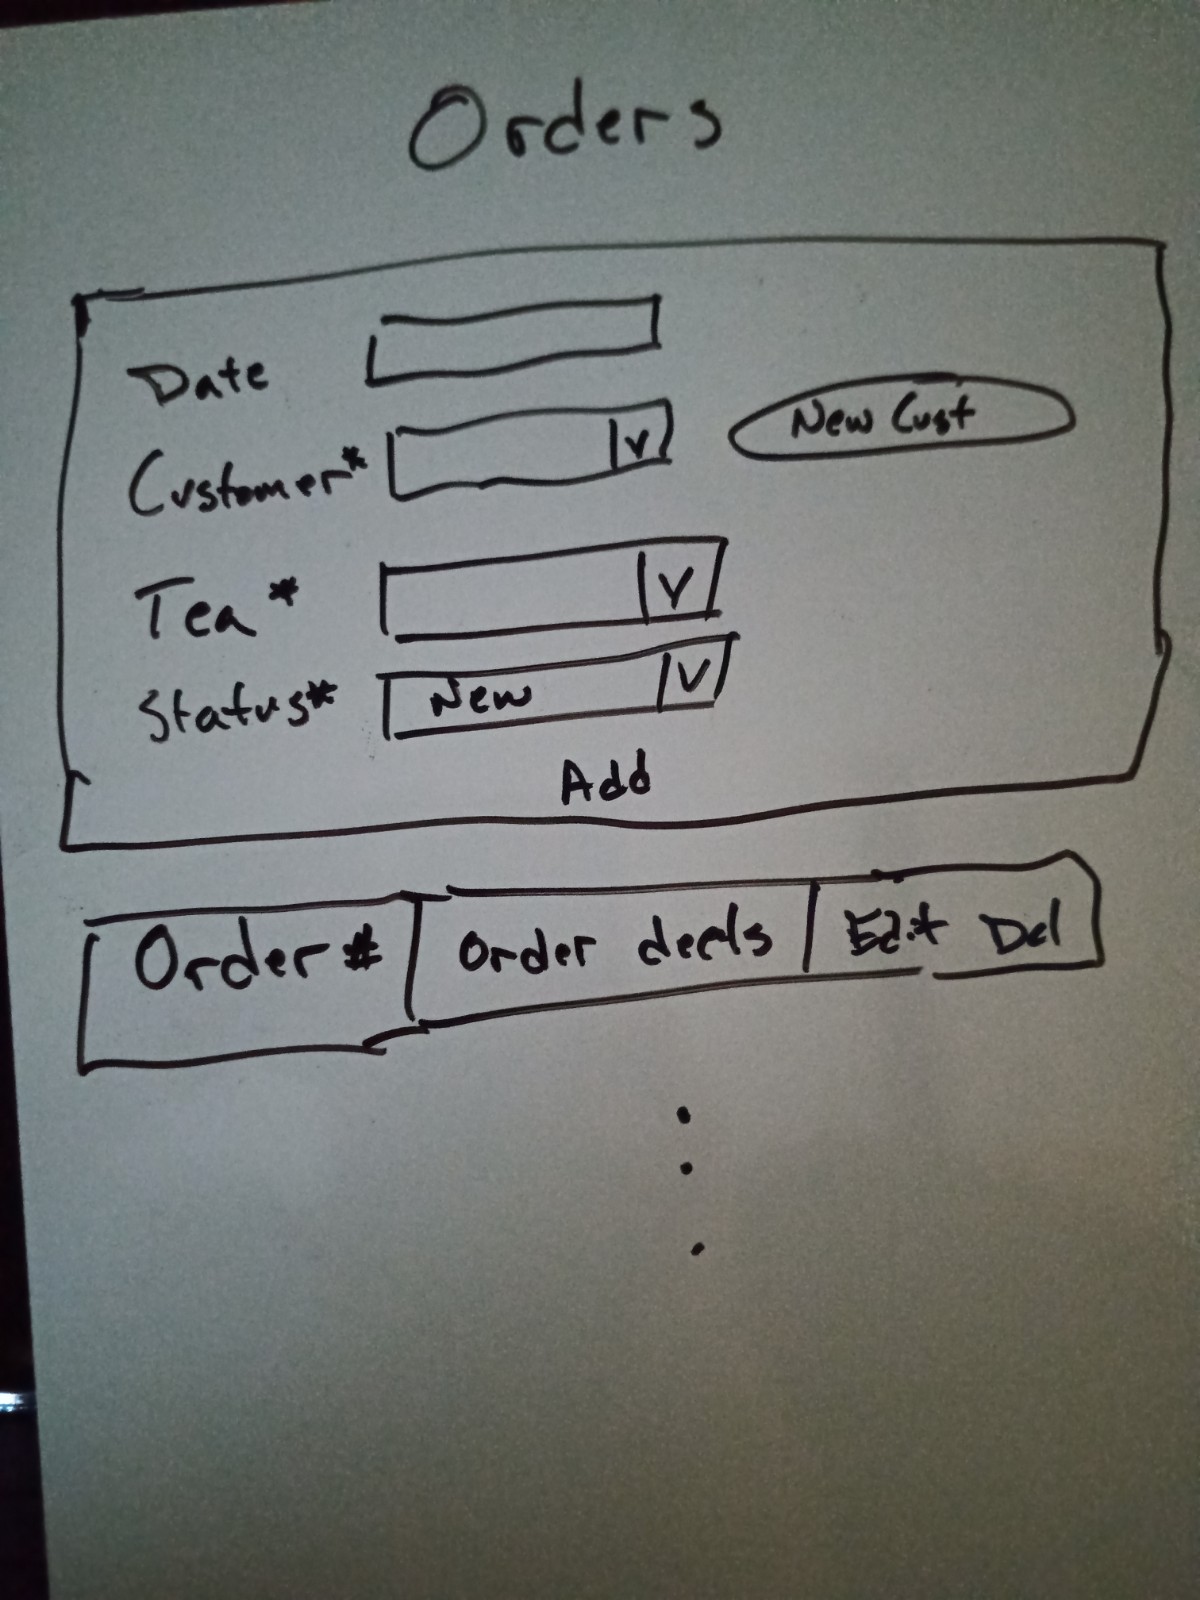 Orders
Date
Customer* V New Cust
Tea* V
Status* New V
Add
Order # Order Edit Del